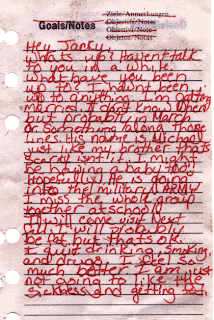 Goals/Notes
Ziele/Anmerkungen
Objectifs/Notes
Objetivos/Notas
Hey Jacky,
whats up? Havent talk
to you in a while.
what have you been
up to? I havnt been
up to anything. I'm getting
married I dont know when
but probably March
or something along those
lines. His name is Michael
just like my brother thats
scary isnt it. I might
be having a baby too,
hopefully. He is going
into the military ARMY
I miss the whole group
together at school
I will come visit next
fall. I will probably
be fat but thats ok.
I've quit drinking, smoking,
and drugs. I feel so
much better I am just
not going to like the
sickness and getting fat.